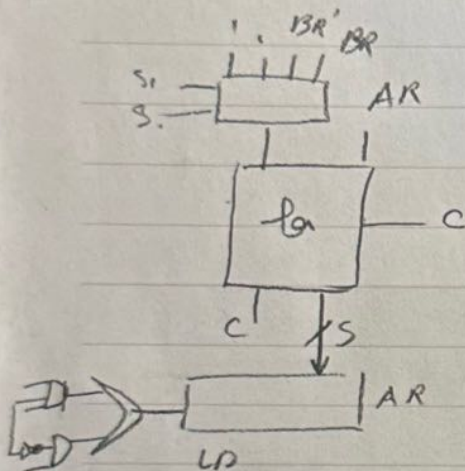 1 0 BR' BR
S1
S0
AR
fa
C
C
S
AR
LD